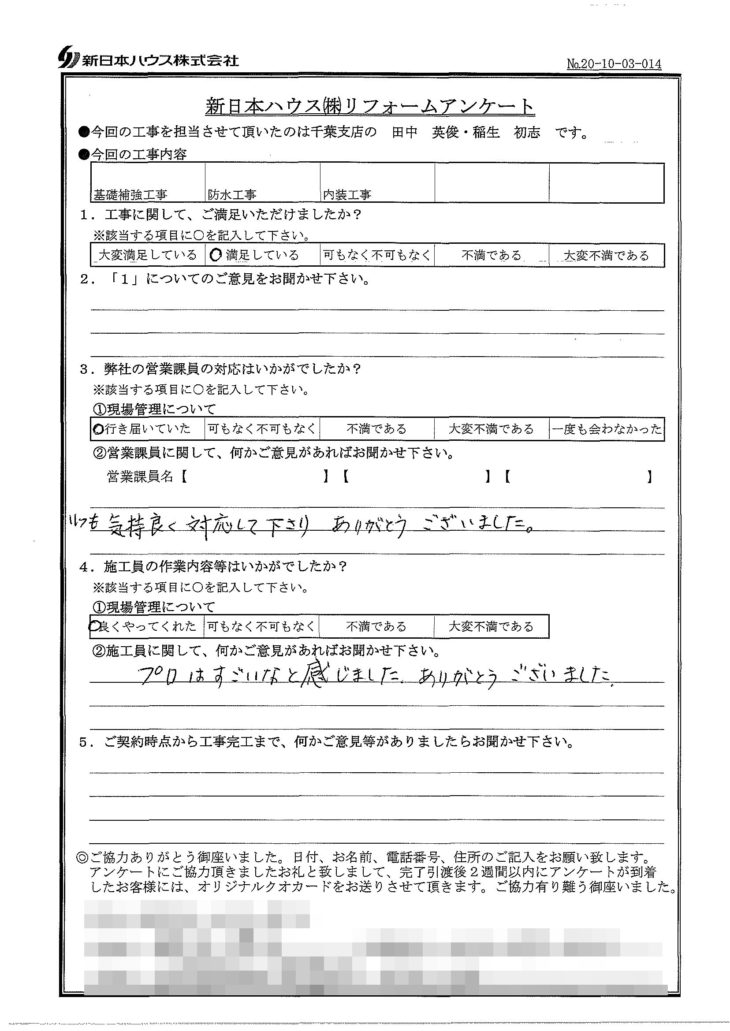 新日本ハウス株式会社
No.20-10-03-014
新日本ハウス㈱リフォームアンケート
●今回の工事を担当させて頂いたのは千葉支店の 田中 英俊・稲生 初志 です。
●今回の工事内容
基礎補強工事 防水工事 内装工事
1．工事に関して、ご満足いただけましたか？
※該当する項目に○を記入して下さい。
大変満足している ○ 満足している 可もなく不可もなく 不満である 大変不満である
2．「1」についてのご意見をお聞かせ下さい。
3．弊社の営業課員の対応はいかがでしたか？
※該当する項目に○を記入して下さい。
①現場管理について
○行き届いていた 可もなく不可もなく 不満である 大変不満である 一度も会わなかった
②営業課員に関して、何かご意見があればお聞かせ下さい。
営業課員名【 】【 】【 】
いつも気持良く対応して下さり ありがとう ございました。
4．施工員の作業内容等はいかがでしたか？
※該当する項目に○を記入して下さい。
①現場管理について
○良くやってくれた 可もなく不可もなく 不満である 大変不満である
②施工員に関して、何かご意見があればお聞かせ下さい。
プロはすごいなと感じました。ありがとう ございました。
5．ご契約時点から工事完工まで、何かご意見等がありましたらお聞かせ下さい。
◎ご協力ありがとう御座いました。日付、お名前、電話番号、住所のご記入をお願い致します。
アンケートにご協力頂きましたお礼と致しまして、完了引渡後2週間以内にアンケートが到着
したお客様には、オリジナルクオカードをお送りさせて頂きます。ご協力有り難う御座いました。